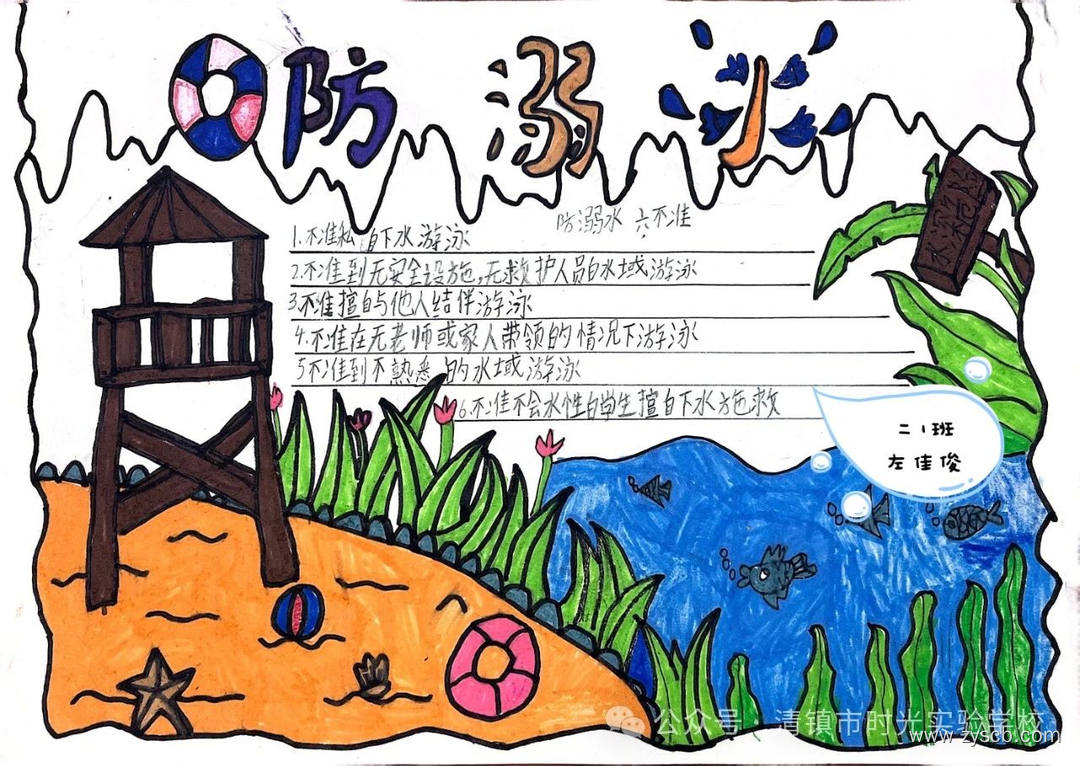 防溺水
防溺水 六不准
1.不准私自下水游泳
2.不准到无安全设施,无救护人员白水域游泳
3不准擅自与他人结伴游泳
4.不准在无老师或家人带领的情况下游泳
5不准到不熟悉的水域游泳
6.不准不会水性的学生擅自下水施救
水深危险
二1班
左佳俊
公众号 清镇市时光实验学校
www.zyscb.com